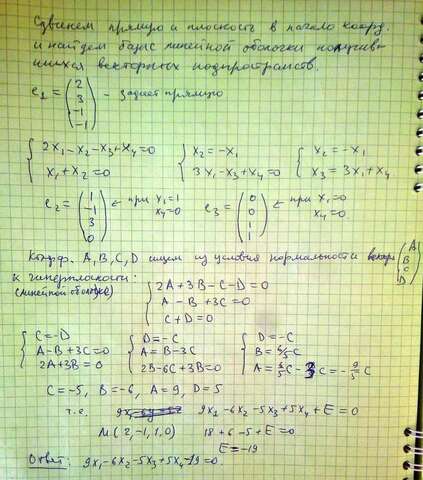 Сдвинем прямую и плоскость в начало коорд.
и найдем базис линейной оболочки получив-
шихся векторных подпространств.
e₁ = (2 3 -1 -1) - задает прямую
{ 2x₁-x₂-x₃+x₄=0 { x₂=-x₁ { x₂=-x₁
x₁+x₂=0 3x₁-x₃+x₄=0 x₃=3x₁+x₄
e₂ = (1 -1 3 0) ← при x₁=1 x₄=0 e₃ = (0 0 1 1) ← при x₁=0 x₄=0
Коэфф. A, B, C, D ищем из условия нормальности вектора (A B C D)
к гиперплоскости:
(линейной оболочке)
{ 2A+3B-C-D=0
A-B+3C=0
C+D=0
{ C=-D { D=-C { D=-C
A-B+3C=0 A=B-3C B=6/5C
2A+3B=0 2B-6C+3B=0 A=6/5C-3C=-9/5C
C=-5, B=-6, A=9, D=5
т.е. 9x₁-6x₂-5x₃+5x₄+E=0
M(2,-1,1,0) 18+6-5+E=0
E=-19
Ответ: 9x₁-6x₂-5x₃+5x₄-19=0.